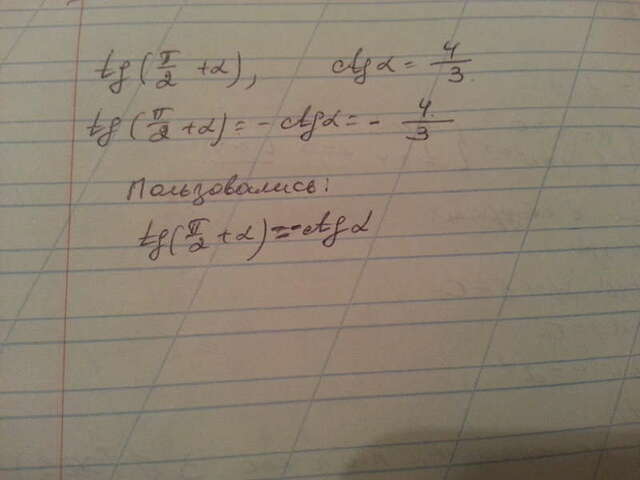 tg(π/2 + α), ctg α = 4/3.
tg(π/2 + α) = - ctg α = - 4/3
Пользовались:
tg(π/2 + α) = - ctg α